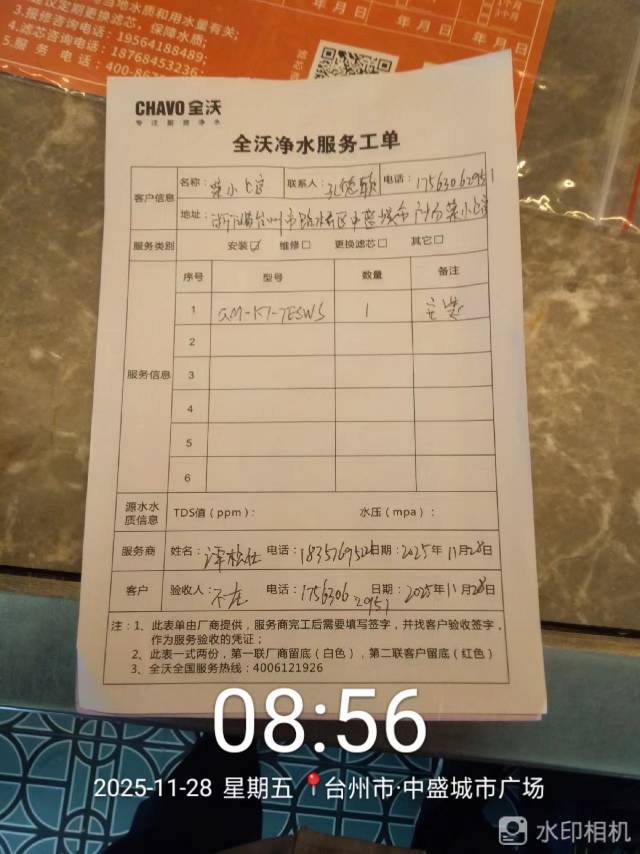 议定期更换滤芯，保障水质；
地水质和用水量有关；
3.报修咨询电话：19564188489；
4.滤芯咨询电话：18768453236；
5.服务电话：400-867
年 月 日
年 月 日
1个月
CHAVO全沃
专注厨房净水
全沃净水服务工单
客户信息 名称：荣小馆 联系人： 电话：17563062951
地址：浙江省台州市路桥区中盛城市广场荣小馆
服务类别 安装☑ 维修□ 更换滤芯□ 其它□
服务信息 序号 型号 数量 备注
1 1 安装
2
3
4
5
6
源水水质信息 TDS值（ppm）： 水压（mpa）：
服务商 姓名： 电话： 日期：2025年11月28日
客户 验收人：不在 电话：17563062951 日期：2025年11月28日
注：1、此表单由厂商提供，服务商完工后需要填写签字，并找客户验收签字，
作为服务验收的凭证；
2、此表一式两份，第一联厂商留底（白色），第二联客户留底（红色）
3、全沃全国服务热线：4006121926
08:56
2025-11-28 星期五 台州市·中盛城市广场
水印相机